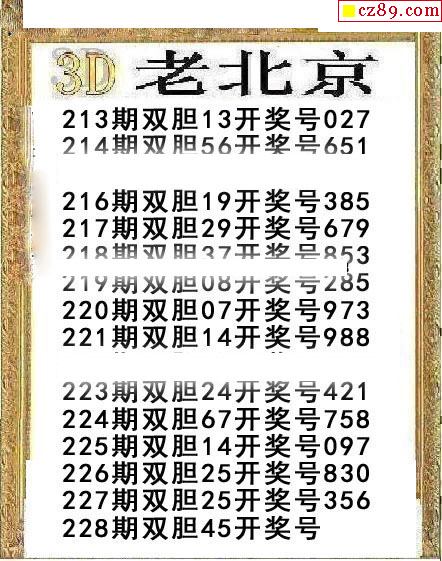 cz89.com
3D 老北京
213期双胆13开奖号027
214期双胆56开奖号651
216期双胆19开奖号385
217期双胆29开奖号679
218期双胆37开奖号853
219期双胆08开奖号285
220期双胆07开奖号973
221期双胆14开奖号988
223期双胆24开奖号421
224期双胆67开奖号758
225期双胆14开奖号097
226期双胆25开奖号830
227期双胆25开奖号356
228期双胆45开奖号